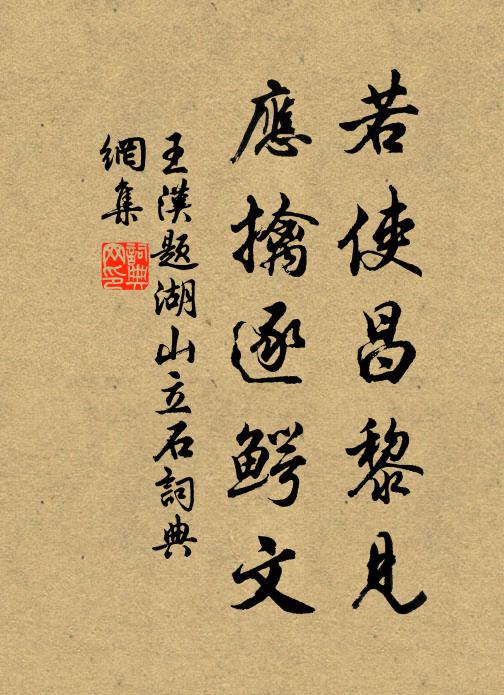 若使昌黎見
應擒逐鰐文
王漢題湖山立石詞典
網集
詞典
网印